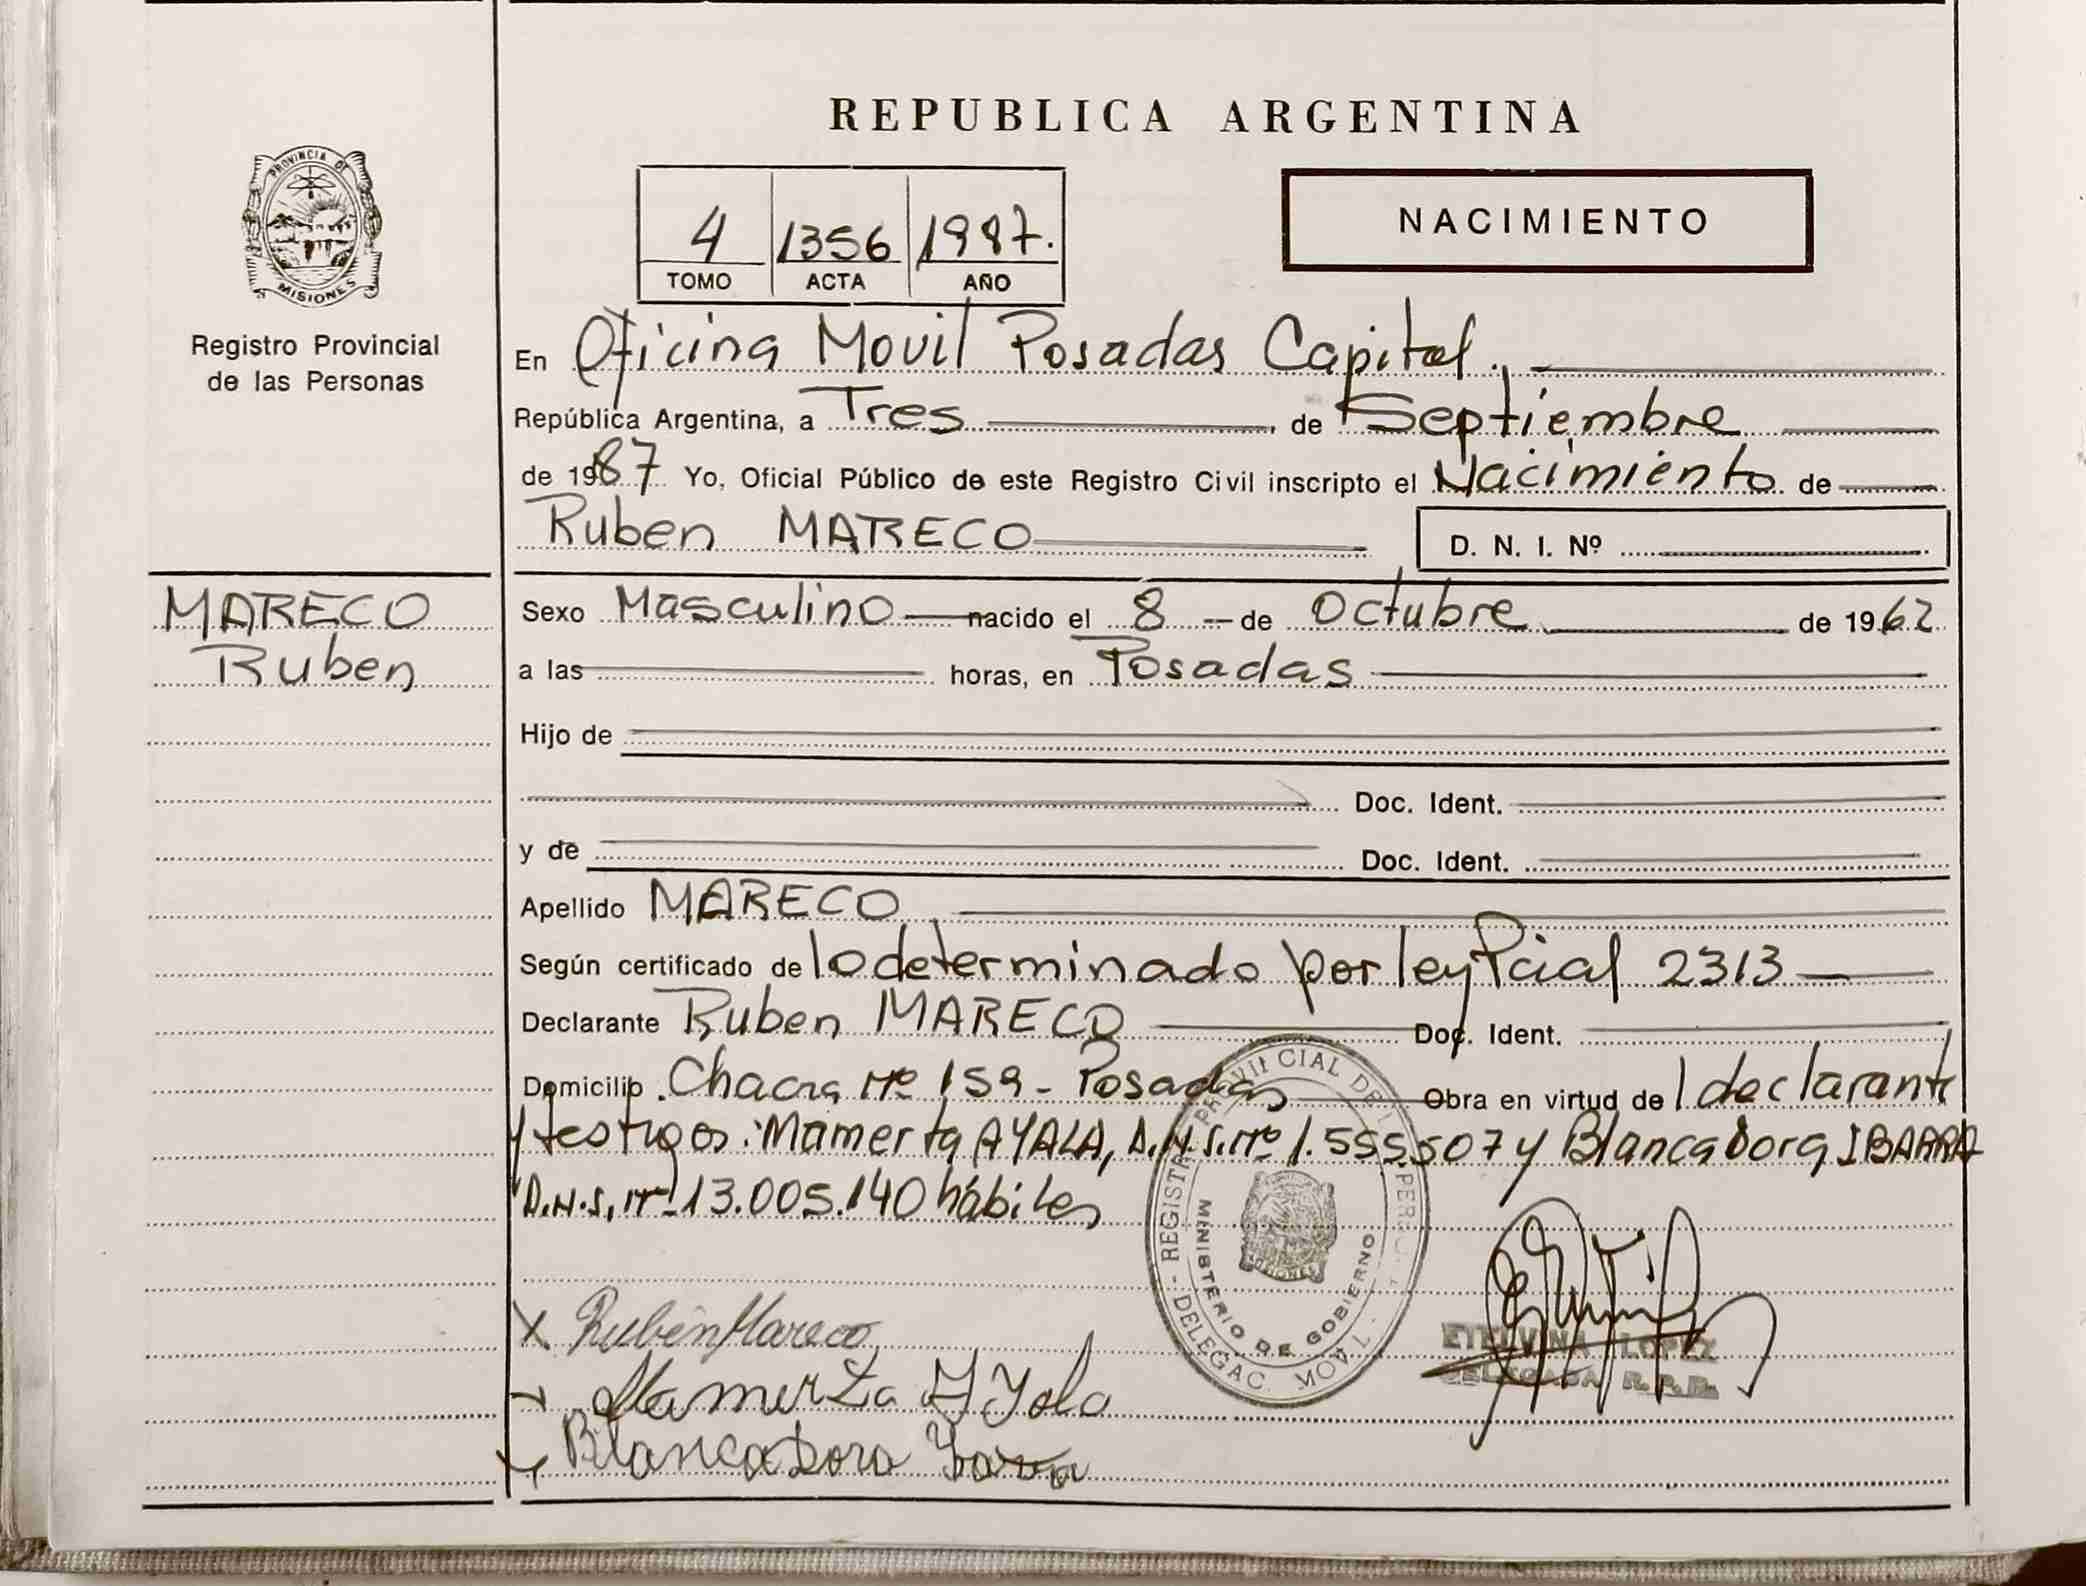 REPUBLICA ARGENTINA
PROVINCIA DE MISIONES
Registro Provincial
de las Personas
4 1356 1987.
TOMO ACTA AÑO
NACIMIENTO
En Oficina Movil Posadas Capital.
República Argentina, a Tres, de Septiembre
de 1987 Yo, Oficial Público de este Registro Civil inscripto el Nacimiento de
Ruben MARECO D. N. I. Nº
MARECO
Ruben
Sexo Masculino nacido el 8 de Octubre de 1962
a las horas, en Posadas
Hijo de
Doc. Ident.
y de Doc. Ident.
Apellido MARECO
Según certificado de lo determinado por ley Pcial 2313
Declarante Ruben MARECO Doc. Ident.
Domicilio Chacra Nº 159 - Posadas Obra en virtud de l declarante
y testigos: Mamerta AYALA, D.N.I. Nº 1.555.507 y Blanca Dora IBARRA
D.N.I. Nº 13.005.140 hábiles
REGISTRO PROVINCIAL DE PERSO
MINISTERIO DE GOBIERNO
DELEGAC. MOVIL
X Ruben Mareco
Mamerta Ayala
ETELVINA LOPEZ
DELEGADA R.P.P.
Blanca Dora